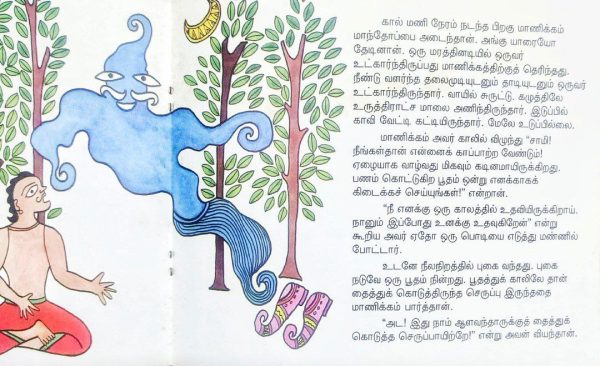 கால் மணி நேரம் நடந்த பிறகு மாணிக்கம்
மாந்தோப்பை அடைந்தான். அங்கு யாரையோ
தேடினான். ஒரு மரத்தினடியில் ஒருவர்
உட்கார்ந்திருப்பது மாணிக்கத்திற்குத் தெரிந்தது.
நீண்டு வளர்ந்த தலைமுடியுடனும் தாடியுடனும் ஒருவர்
உட்கார்ந்திருந்தார். வாயில் சுருட்டு. கழுத்திலே
உருத்திராட்ச மாலை அணிந்திருந்தார். இடுப்பில்
காவி வேட்டி கட்டியிருந்தார். மேலே உடுப்பில்லை.
மாணிக்கம் அவர் காலில் விழுந்து "சாமி!
நீங்கள்தான் என்னைக் காப்பாற்ற வேண்டும்!
ஏழையாக வாழ்வது மிகவும் கடினமாயிருக்கிறது.
பணம் கொட்டுகிற பூதம் ஒன்று எனக்காகக்
கிடைக்கச் செய்யுங்கள்!" என்றான்.
"நீ எனக்கு ஒரு காலத்தில் உதவியிருக்கிறாய்.
நானும் இப்போது உனக்கு உதவுகிறேன்" என்று
கூறிய அவர் ஏதோ ஒரு பொடியை எடுத்து மண்ணில்
போட்டார்.
உடனே நீலநிறத்தில் புகை வந்தது. புகை
நடுவே ஒரு பூதம் நின்றது. பூதத்துக் காலிலே தான்
தைத்துக் கொடுத்திருந்த செருப்பு இருந்ததை
மாணிக்கம் பார்த்தான்.
"அட! இது நாம் ஆளவந்தாருக்குத் தைத்துக்
கொடுத்த செருப்பாயிற்றே!" என்று அவன் வியந்தான்.